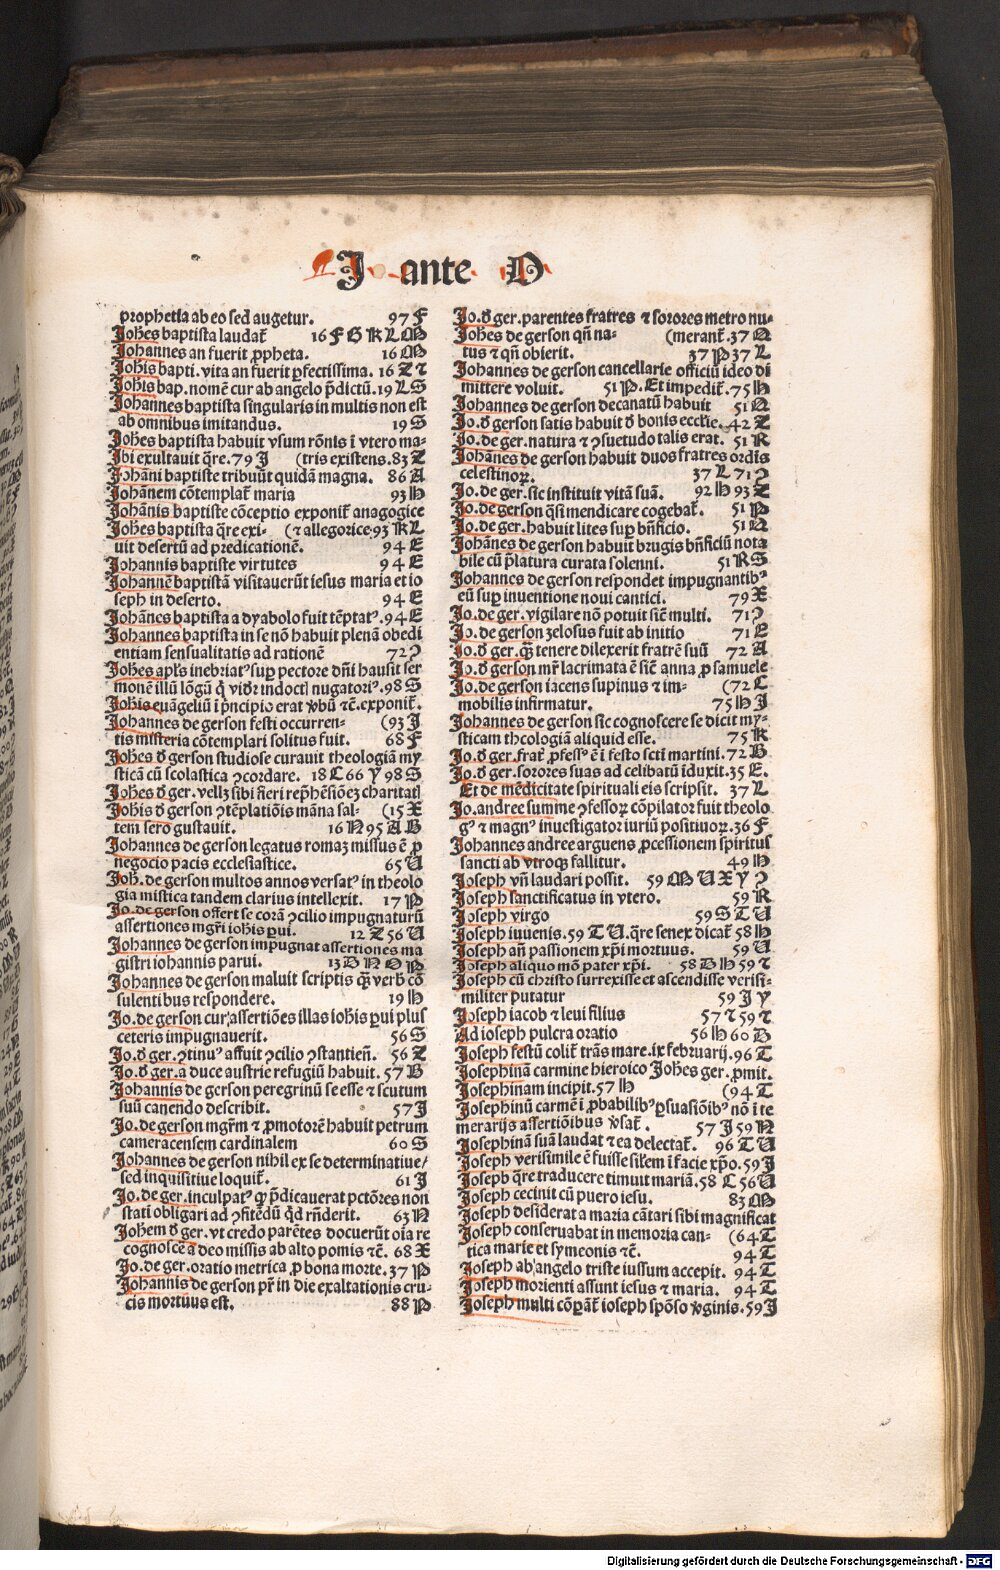 J ante O
prophetia ab eo sed augetur. 97 F
Johēs baptista laudat᷑ 16 F G K L M
Johannes an fuerit ꝓpheta. 16 M
Joh̄is bapti. vita an fuerit ꝑfectissima. 16 Z ⁊
Joh̄is bap. nomē cur ab angelo p̄dictū. 19 L S
Johannes baptista singularis in multis non est
ab omnibus imitandus. 19 S
Johēs baptista habuit vsum rōnis ī vtero ma-
Ibi exultauit q̄re. 79 J (tris existens. 83 Z
Johāni baptiste tribuūt quidā magna. 86 A
Johānem cōtemplat᷑ maria 93 H
Johānis baptiste cōceptio exponit᷑ anagogice
Johēs baptista q̄re exi- (⁊ allegorice 93 K L
uit desertū ad predicationē. 94 E
Johannis baptiste virtutes 94 E
Johannē baptistā visitauerūt iesus maria et io
seph in deserto. 94 E
Johānes baptista a dyabolo fuit tēptatꝰ. 94 E
Johannes baptista in se nō habuit plenā obedi
entiam sensualitatis ad rationē 72 ?
Johēs apl̄s inebriatꝰ suꝑ pectore dn̄i hausit ser
monē illū lōgū q̄ vidr̄ indocti nugatoriꝰ. 98 S
Joh̄is euāgeliū ī p̄ncipio erat v̄bū ⁊c̄. exponit᷑.
Johannes de gerson festi occurren- (93 J
tis misteria cōtemplari solitus fuit. 68 F
Johēs đ gerson studiose curauit theologiā my
sticā cū scolastica ꝯcordare. 18 C 66 Y 98 S
Johēs đ ger. vellꝫ sibi fieri rep̄hēsiōeꝫ charitati
Joh̄is đ gerson ꝯtēplatiōis māna sal- (15 X
tem sero gustauit. 16 N 95 A B
Johannes de gerson legatus romaꝫ missus ē ꝓ
negocio pacis ecclesiastice. 65 U
Joh. de gerson multos annos versatꝰ in theolo
gia mistica tandem clarius intellexit. 17 P
Jo. de gerson offert se corā ꝯcilio impugnaturū
assertiones mgr̄i ioh̄is ꝑui. 12 Z 56 U
Johannes de gerson impugnat assertiones ma
gistri iohannis parui. 13 D N O P
Johannes de gerson maluit scriptis q̄ꝫ verb̄ cō
sulentibus respondere. 19 H
Jo. de gerson cur assertiōes illas ioh̄is ꝑui plus
ceteris impugnauerit. 56 S
Jo. đ ger. ꝯtinuꝰ affuit ꝯcilio ꝯstantien̄. 56 Z
Jo. đ ger. a duce austrie refugiū habuit. 57 B
Johannis de gerson peregrinū se esse ⁊ scutum
suū canendo describit. 57 J
Jo. de gerson mgr̄m ⁊ ꝓmotorē habuit petrum
cameracensem cardinalem 60 S
Johannes de gerson nihil ex se determinatiue/
sed inquisitiue loquit᷑. 61 J
Jo. de ger. inculpatꝰ ꝙ p̄dicauerat pctōres non
stati obligari ad ꝯfitēdū q̄d rn̄derit. 63 N
Johem đ ger. vt credo parētes docuerūt oīa re
cognoscē a deo missis ab alto pomis ⁊c̄. 68 X
Jo. de ger. oratio metrica ꝓ bona morte. 37 P
Johannis de gerson pr̄ in die exaltationis cru-
cis mortuus est. 88 P
Jo. đ ger. parentes fratres ⁊ sorores metro nu-
Johēs de gerson qn̄ na- (merant᷑. 37 N
tus ⁊ qn̄ obierit. 37 P 37 L
Johannes de gerson cancellarie officiū ideo di
mittere voluit. 51 P. Et impedit᷑. 75 H
Johannes de gerson decanatū habuit 51 N
Jo. đ gerson satis habuit đ bonis eccl̄ie. 42 Z
Jo. de ger. natura ⁊ ꝯsuetudo talis erat. 51 R
Johānes de gerson habuit duos fratres ordīs
celestinoꝝ. 37 L 71 ?
Jo. de ger. sic instituit vitā suā. 92 H 93 Z
Jo. de gerson qn̄si mendicare cogebat᷑. 51 P
Jo. de ger. habuit lites suꝑ bn̄ficio. 51 N
Johānes de gerson habuit brugis bn̄ficiū nota
bile cū p̄latura curata solenni. 51 R S
Johannes de gerson respondet impugnantibꝰ
eū suꝑ inuentione noui cantici. 79 X
Jo. de ger. vigilare nō potuit sic̄ multi. 71 ?
Jo. de gerson ꝫelosus fuit ab initio 71 E
Jo. đ ger. q̄ꝫ tenere dilexerit fratrē suū 72 A
Jo. đ gerson mr̄ lacrimata ē sic̄ anna ꝓ samuele
Jo. de gerson iacens supinus ⁊ im- (72 C
mobilis infirmatur. 75 H J
Johannes de gerson sic cognoscere se dicit my-
sticam theologiā aliquid esse. 75 K
Jo. đ ger. frat᷑ ꝓfessꝰ ē ī festo scti martini. 72 B
Jo. đ ger. sorores suas ad celibatū īduxit. 35 E.
Et de mēdicitate spirituali eis scripsit. 37 L
Jo. andree summe ꝯfessoꝝ cōpilator fuit theolo
gꝰ ⁊ magnꝰ inuestigator iuriū positiuoꝝ. 36 F
Johannes andree arguens ꝓcessionem spiritus
sancti ab vtroqꝫ fallitur. 49 H
Joseph vn̄ laudari possit. 59 M U X Y ?
Joseph sanctificatus in vtero. 59 R
Joseph virgo 59 S T U
Joseph iuuenis. 59 T U. q̄re senex dicat᷑ 58 H
Joseph an̄ passionem xp̄i mortuus. 59 U
Joseph aliquo mō pater xp̄i. 58 D H 59 ⁊
Joseph cū christo surrexisse et ascendisse verisi-
militer putatur 59 J Y
Joseph iacob ⁊ leui filius 57 ⁊ 59 ⁊
Ad ioseph pulcra oratio 56 H 60 D
Joseph festū colit᷑ trās mare. ix februarij. 96 T
Josephinā carmine hieroico Johēs ger. ꝓmit.
Josephinam incipit. 57 H (94 T
Josephinū carmē ī ꝓbabilibꝰ ꝑsuasiōibꝰ nō ī te
merarijs assertiōibus v̄sat᷑. 57 J 59 N
Josephinā suā laudat ⁊ ea delectat᷑. 96 T U
Joseph verisimile ē fuisse silem ī facie xp̄o. 59 J
Joseph q̄re traducere timuit mariā. 58 C 56 U
Joseph cecinit cū puero iesu. 83 M
Joseph desiderat a maria cātari sibi magnificat
Joseph conseruabat in memoria can- (64 T
tica marie et symeonis ⁊c̄. 94 T
Joseph ab angelo triste iussum accepit. 94 T
Joseph morienti assunt iesus ⁊ maria. 94 T
Joseph multi cōꝑat᷑ ioseph spōso v̄ginis. 59 J
Digitalisierung gefördert durch die Deutsche Forschungsgemeinschaft - DFG